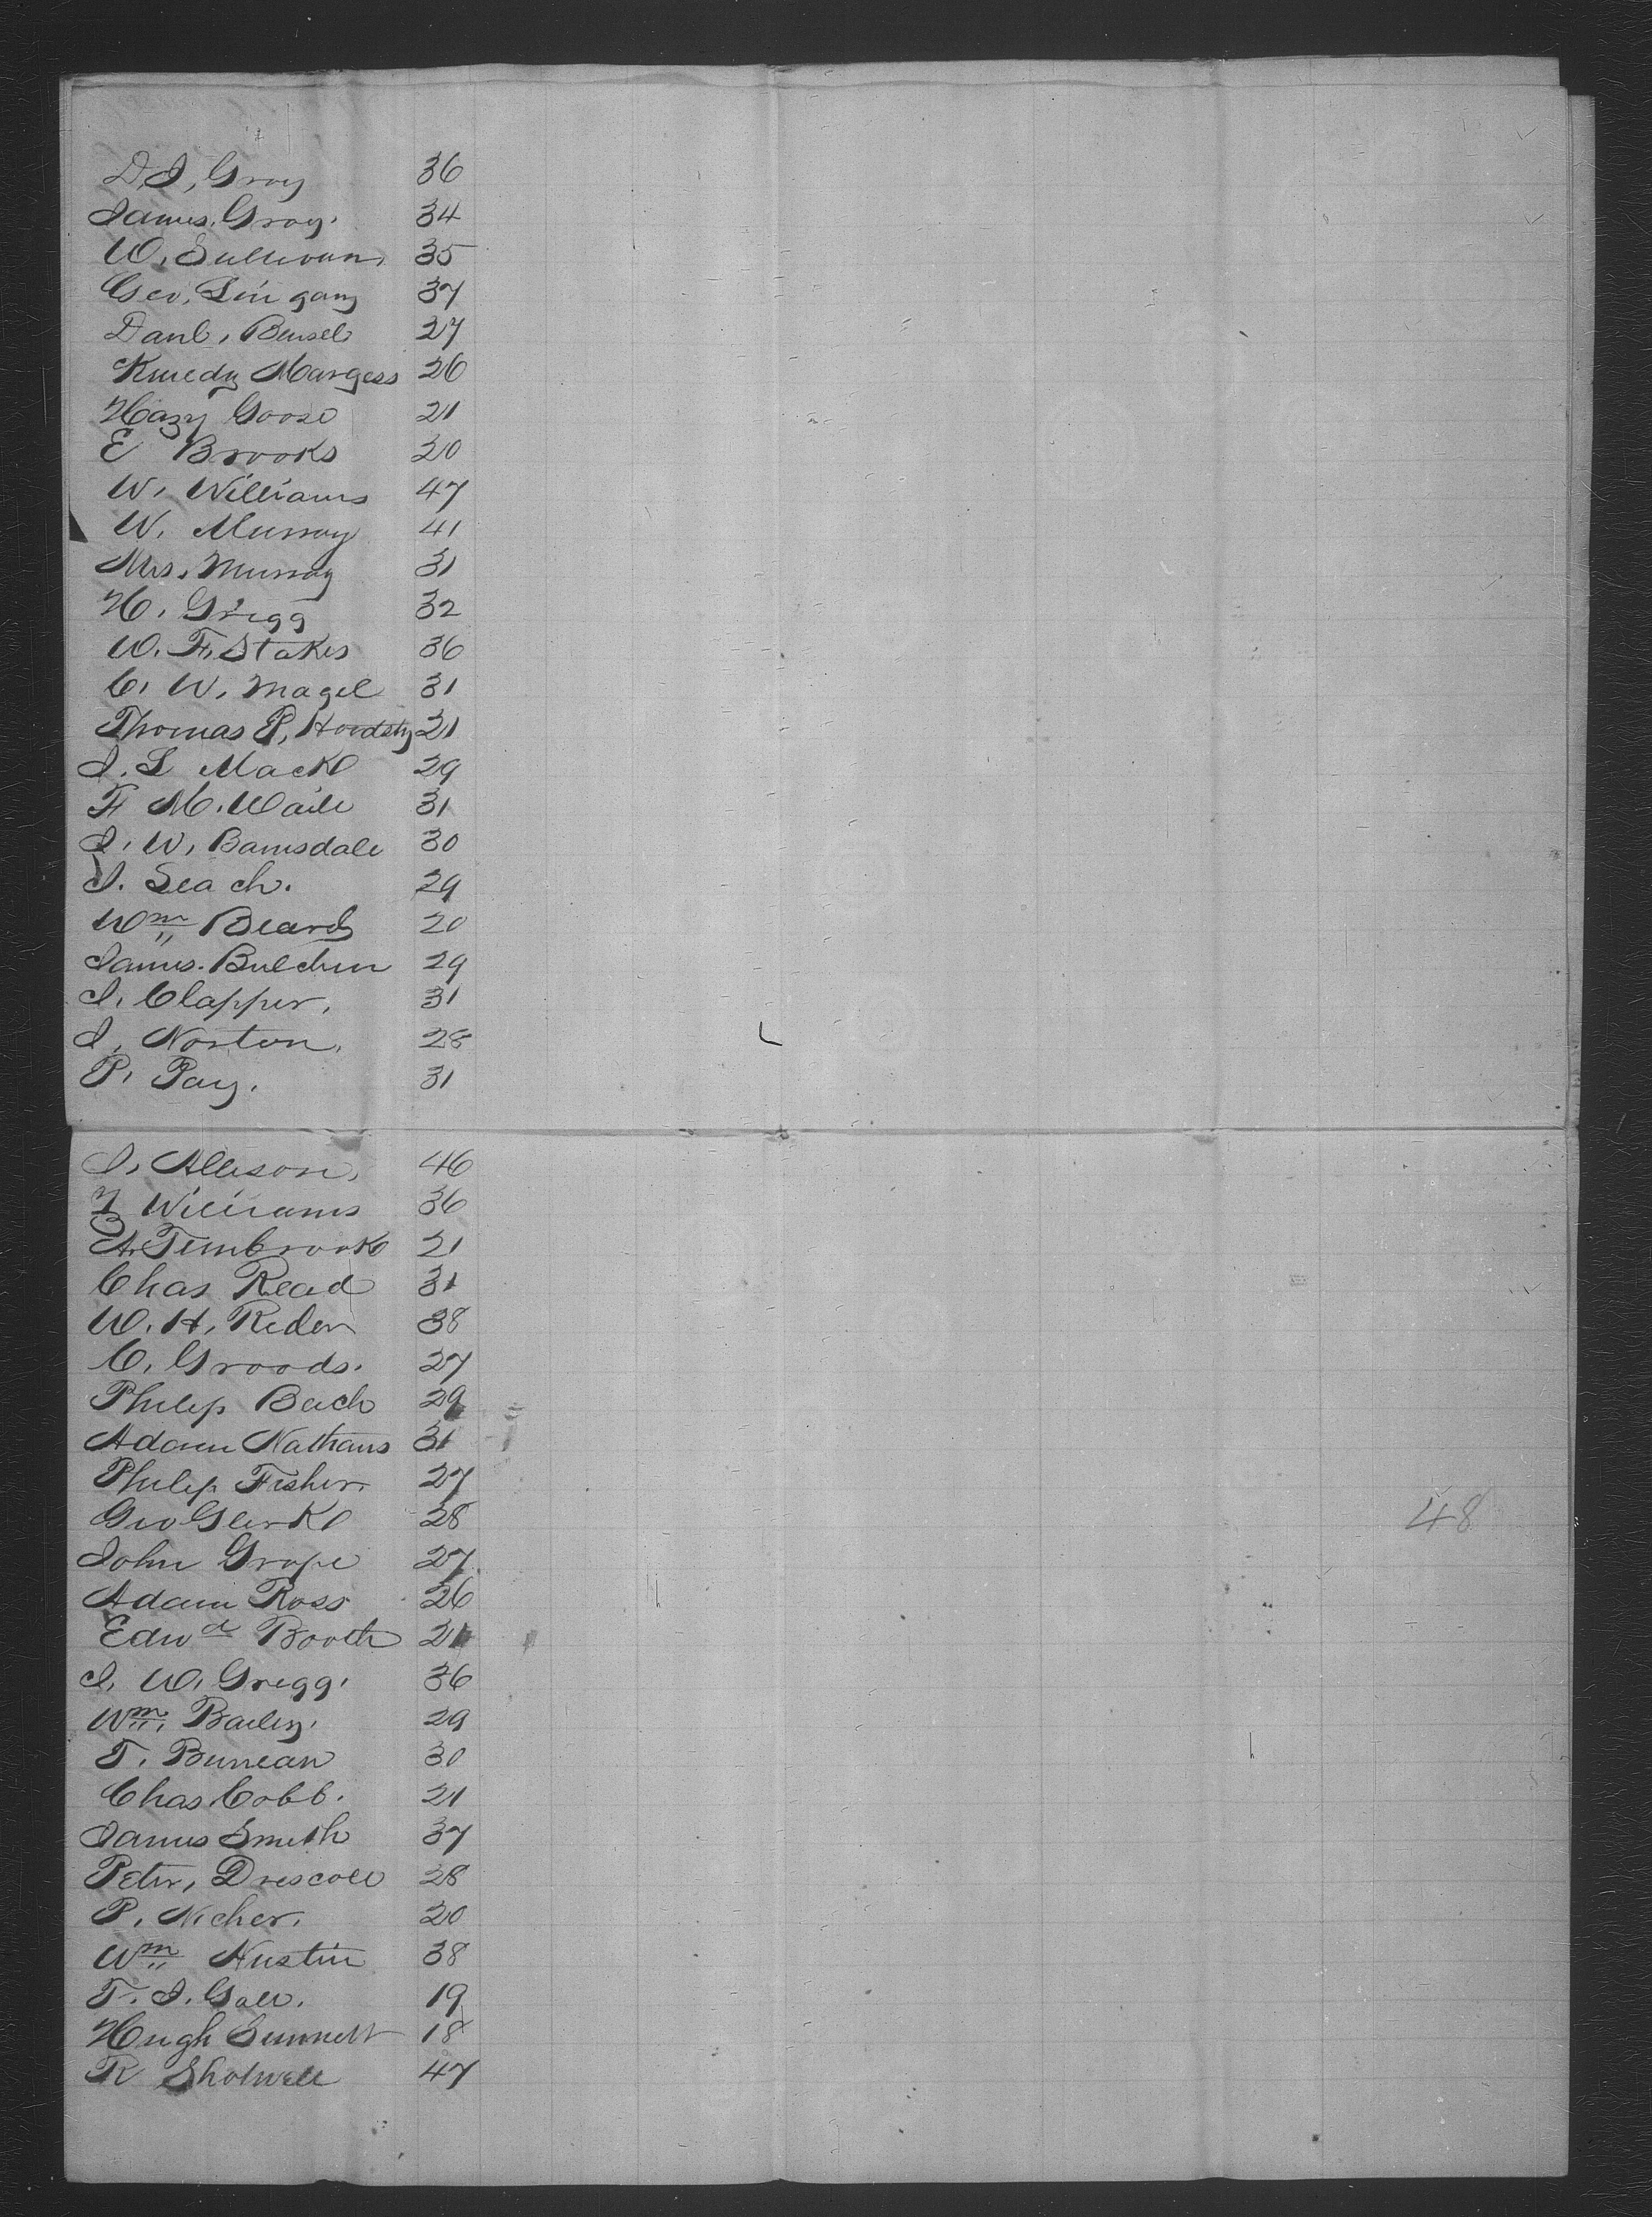 D. J. Gray 36
James Gray. 34
W. Sullivan 35
Geo. Lin gang 37
Danl. Bensel 27
Kmedy Margess 26
Hazy Goose 21
E Brooks 20
W. Williams 47
W. Murray 41
Mrs. Murray 31
H. Gregg 32
W. F. Stakes 36
C. W. Magel 31
Thomas P. 21
J. L Mack 29
F M. Waile 31
J. W. Barnsdale 30
J. Leach. 29
Wm Beard 20
James. Bulchen 29
J. Clapper. 31
J. Norton. 28
P. Pay. 31
J. Allison. 46
Williams 36
A. Timbrook 21
Chas Read 31
W. H. Reder 38
C. Groods. 27
Philip Bach 29
Adam Nathans 31
Philip Fisher 27
Geo Glerk 28
John Grape 27
Adam Ross 26
Edwd Booth 21
J. W. Gregg. 36
Wm. Bailey. 29
T. Buncan 30
Chas Cobb. 21
James Smith 37
Peter, Drescoll 28
P. Nicher. 20
Wm Hustin 38
T. J. Gall. 19
Hugh Sunnett 18
R Shotwell 47
48